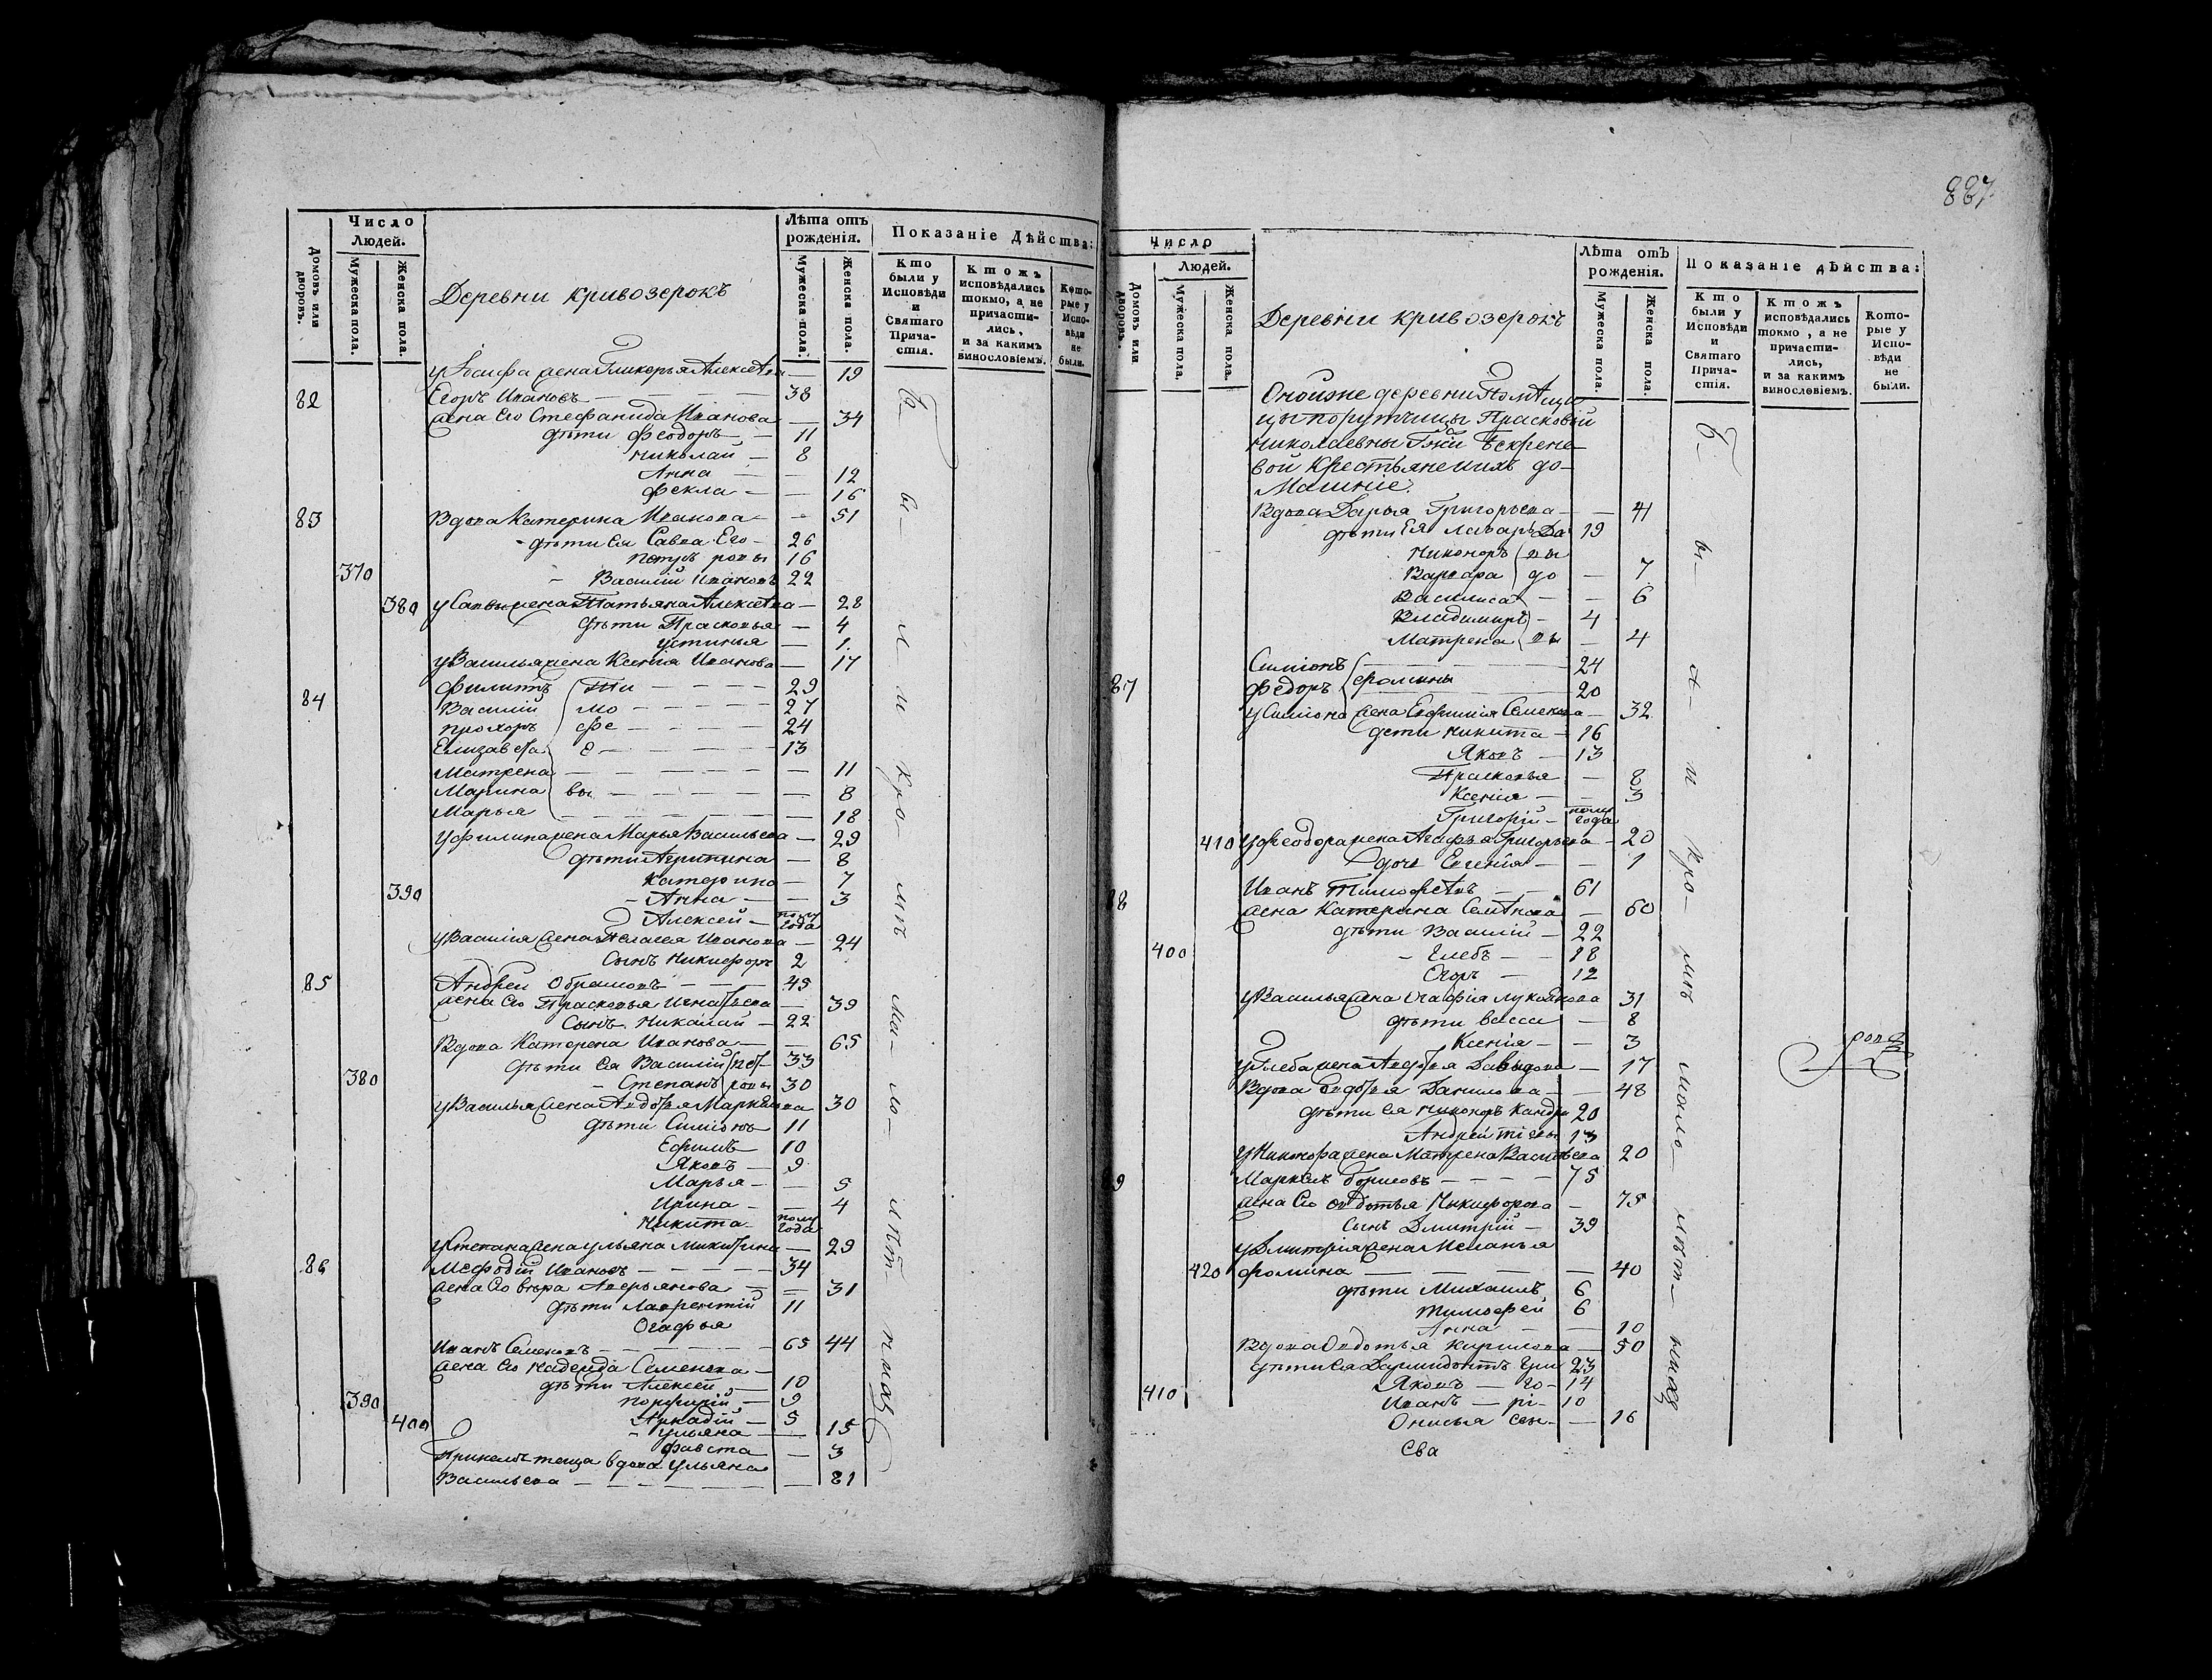 Число
Людей.
Домовъ или дворовъ.
Мужеска пола.
Женска пола.
Деревни Кривозерокъ
Лѣта отъ рожденія.
Мужеска пола.
Женска пола.
Показаніе Дѣйства:
Кто были у Исповѣди и Святаго Прича-стія.
Ктожъ исповѣдались токмо, а не причасти-лись, и за какимъ винословіемъ.
Кото-рые у Испо-вѣди не были.
у жена Гликерья 19
82 Егоръ Ивановъ 38
жена Его Стефанида Иванова 34
дѣти Феодоръ 11
Николай 8
Анна 12
Фекла 16
83 Вдова Катерина Иванова 51
дѣти Ея Савва Его 26
Петръ ровы 16
370 Василій Ивановъ 22
380 у Саввы жена Татьяна 28
дѣти Прасковья 4
Устинья 1
у Василья жена Ксенія Иванова 17
84 Филиппъ Ти 29
Василій мо 27
Прохоръ фе 24
Елизавета е 13
Матрена 11
Марина вы 8
Марья 18
у Филипа жена Марья Васильева 29
дѣти Агрипина 8
Катерина 7
390 Анна 3
Алексей полу года
у Василія жена Пелагея Иванова 24
Сынъ Никифоръ 2
85 Андрей Обрамовъ 45
жена Его Прасковья Игнатьева 39
Сынъ Николай 22
Вдова Катерена Иванова 65
дѣти Ея Василій Пет 33
380 Степанъ ровы 30
у Василья жена Авдотья 30
дѣти Симіонъ 11
Ефимъ 10
Яковъ 9
Марья 5
Ирина 4
Никита полу года
у Степана жена Ульяна 29
86 Мефодій Ивановъ 34
жена Его Вѣра Аверьянова 31
дѣти Лаврентій 11
Огафья
Иванъ Семеновъ 65 44
жена Его Надежда Семенова
дѣти Алексей 10
390 Порфирій 9
400 Аркадій 5
Ульяна 15
Фавста 3
теща вдова Ульяна
Васильева 81
887
Число
Людей.
Домовъ или дворовъ.
Мужеска пола.
Женска пола.
Деревни Кривозерокъ
Лѣта отъ рожденія.
Мужеска пола.
Женска пола.
Показаніе дѣйства:
Кто были у Исповѣди и Святаго Прича-стія.
Ктожъ исповѣдались токмо, а не причасти-лись, и за какимъ винословіемъ.
Кото-рые у Испо-вѣди не были.
Оной же деревни Помѣщи
цы порутчицы Прасковьи
Николаевны Гжи
вой Крестьяне ихъ до-
машніе.
Вдова Дарья Григорьева 41
дѣти Ея Да 19
Никоноръ вы
Варвара до 7
Василиса 6
Владимиръ 4
Матрена вы 4
Симіонъ 24
87 Федоръ Фомины 20
у Симіона жена Ефимія Семенова 32
дети Никита 16
Яковъ 13
Прасковья 8
Ксенія 3
Григорій полу года
410 у Феодора жена Агафья Григорьева 20
дочь Евгенія 1
88 Иванъ Тимофеевъ 61
жена Катерина 60
дѣти Василій 22
400 Глебъ 18
Огоръ 12
у Василья жена Огафія 31
дѣти Васса 8
Ксенія 3
у Глеба жена Авдотья Давыдова 17
Вдова Овдотья Данилова 48
дѣти Ея Никоноръ 20
Андрей 13
у Никонора жена Матрена Васильева 20
89 Маркелъ Борисовъ 75
жена Его Овдотья Никифорова 75
Сынъ Дмитрій 39
у Дмитрія жена Меланья
420 Фомина 40
дѣти Михаилъ 6
Тимофей 6
Анна 10
Вдова Овдотья Кирилова 50
дѣти Ея Гри 23
Яковъ го 14
410 Иванъ рі 10
Онисья 16
Ева